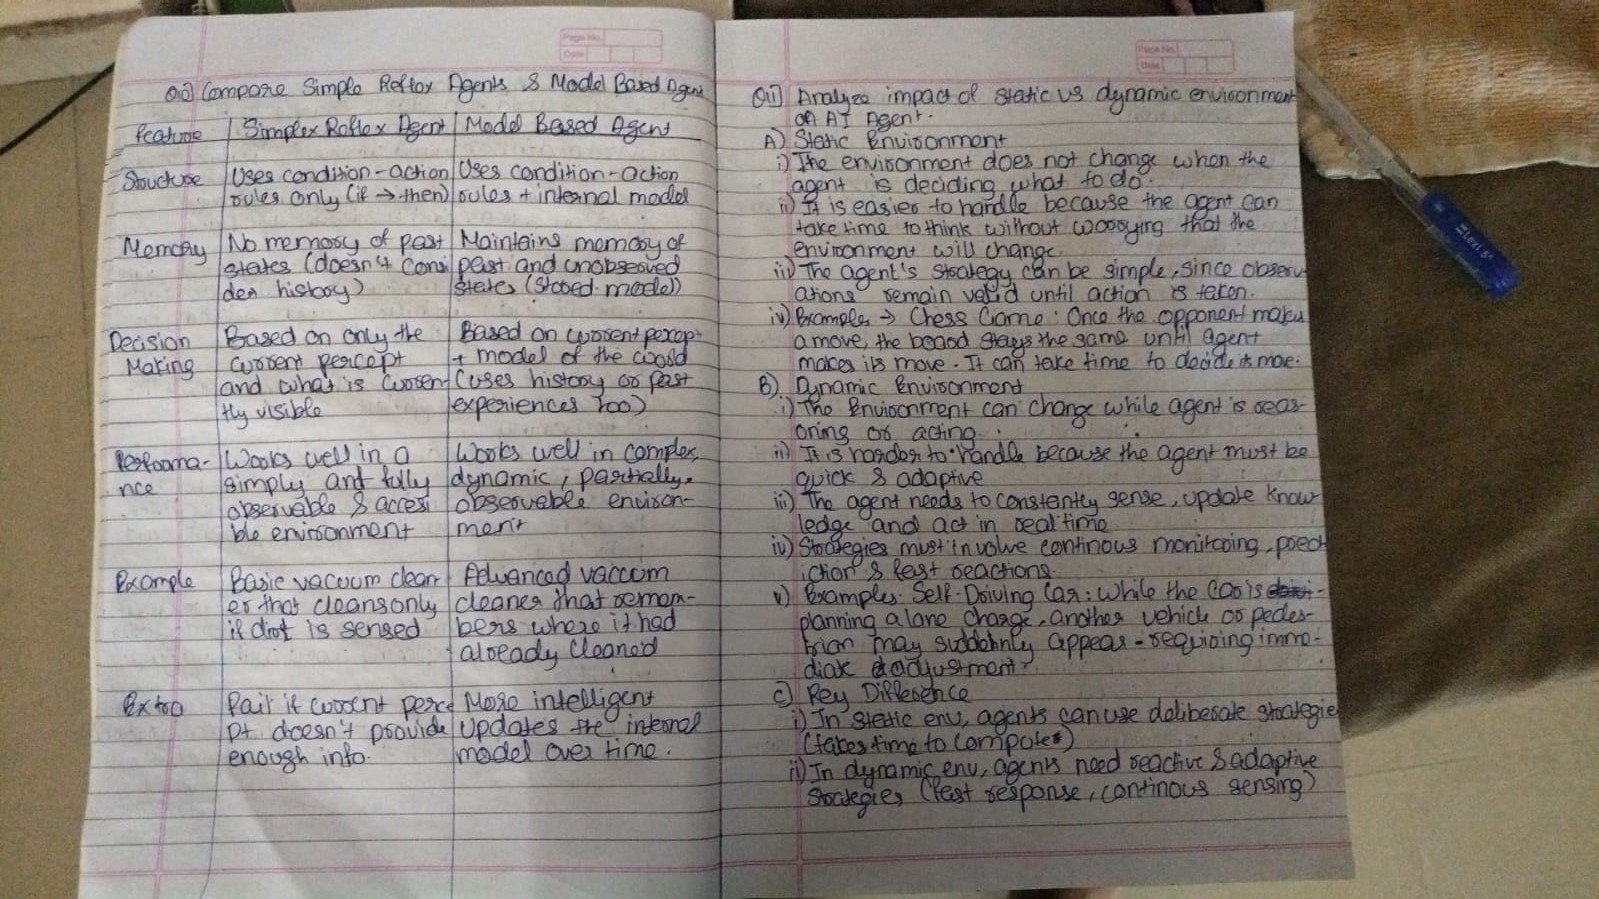 Page No.
Date
Q10) Compare Simple Reflex Agents & Model Based Agent
Feature | Simplex Reflex Agent | Model Based Agent
Structure | Uses condition-action | Uses condition-action
rules only (if → then) | rules + internal model
Memory | No memory of past | Maintains memory of
states (doesn't consi | past and unobserved
der history) | states (stored model)
Decision | Based on only the | Based on current percept
Making | current percept | + model of the world
and what is curren | (uses history or past
tly visible | experiences too)
Performa- | Works well in a | Works well in complex,
nce | simply and fully | dynamic, partially
observable & accesi | observeable environ-
ble environment | ment
Example | Basic vacuum clean | Advanced vaccum
er that cleans only | cleaner that remem-
if dirt is sensed | bers where it had
already cleaned
Extra | Fail if current perce | More intelligent
pt doesn't provide | updates the internal
enough info. | model over time.
Page No.
Date
Q11) Analyze impact of static vs dynamic environment
on AI Agent.
A) Static Environment
i) The environment does not change when the
agent is deciding what to do.
ii) It is easier to handle because the agent can
take time to think without worrying that the
environment will change.
iii) The agent's strategy can be simple, since observ
ations remain valid until action is taken.
iv) Examples → Chess Game: Once the opponent makes
a move, the board stays the same until agent
makes its move. It can take time to decide its move.
B) Dynamic Environment
i) The Environment can change while agent is reas-
oning or acting.
ii) It is harder to handle because the agent must be
quick & adaptive
iii) The agent needs to constantly sense, update know
ledge and act in real time
iv) Strategies must involve continous monitoring, pred
iction & fast reactions
v) Examples: Self-Driving Car: While the car is
planning a lane change, another vehicle or pedes-
trian may suddenly appear - requiring imme-
diate adjustment.
C) Key Difference
i) In static env, agents can use deliberate strategie
(takes time to compute)
ii) In dynamic env, agents need reactive & adaptive
strategies (fast response, continous sensing)